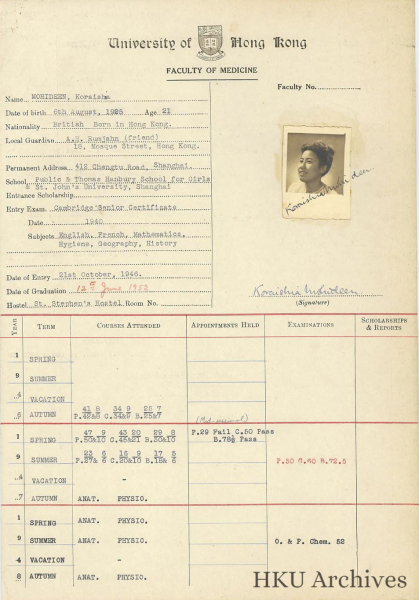 University of Hong Kong
FACULTY OF MEDICINE
Faculty No.
Name MOHIDEEN, Koraisha
Date of birth 6th August, 1925 Age 21
Nationality British Born in Hong Kong.
Local Guardian A.S. Rumjahn (friend)
18, Mosque Street, Hong Kong.
Permanent Address 412 Chengtu Road, Shanghai.
School Public & Thomas Hanbury School for Girls
& St. John's University, Shanghai
Entrance Scholarship
Entry Exam. Cambridge Senior Certificate
Date 1940
Subjects English, French, Mathematics,
Hygiene, Geography, History
Date of Entry 21st October, 1946.
Date of Graduation 12th June 1953
Hostel St. Stephen's Hostel Room No.
Koraishia Mohideen
Koraishia Mohideen
(Signature)
YEAR TERM COURSES ATTENDED APPOINTMENTS HELD EXAMINATIONS SCHOLARSHIPS & REPORTS
1 SPRING
9 SUMMER
4 VACATION
6 AUTUMN
41 8 34 9
1 SPRING
47 9 43 20 29 8
P.50&10 C.45&21 B.30&10
P.29 Fail C.50 Pass
B.78½ Pass
9 SUMMER
23 6 16 9 17 5
P.27& 6 C.20&10 B.18& 6
P.50 C.60 B.72.5
4 VACATION -
7 AUTUMN ANAT. PHYSIO.
1 SPRING ANAT. PHYSIO.
9 SUMMER ANAT. PHYSIO. O. & P. Chem. 52
4 VACATION -
8 AUTUMN ANAT. PHYSIO.
HKU Archives